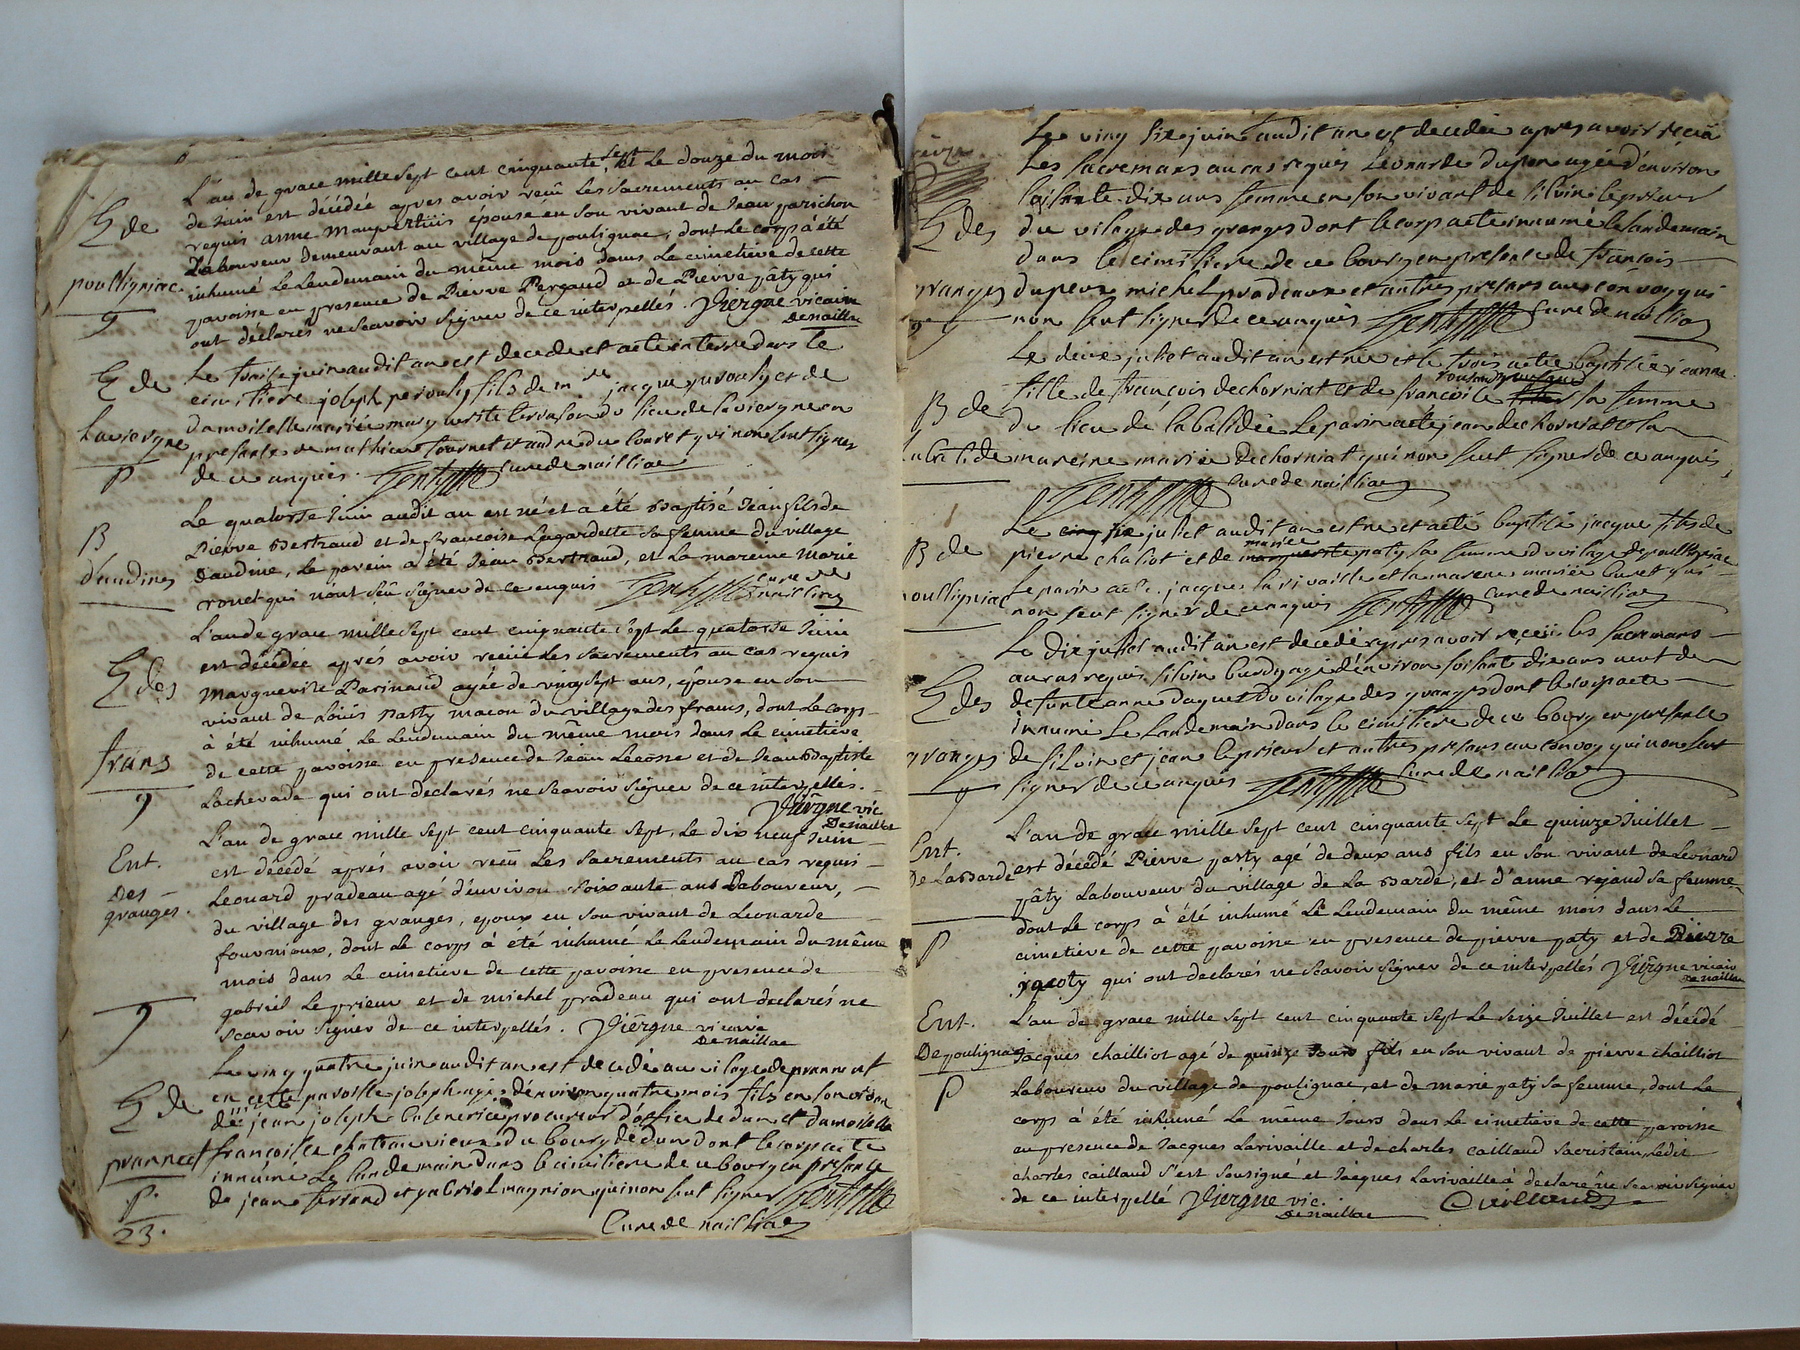 L'an de grace mille sept cent cinquante sept et le douze du mois
de Juin est décédée apres avoir reçû les sacrements au cas
requis anne maupertuis epouse en son vivant de Jean parichon
Laboureur demeurant au village de poulignac, dont le corps à été
inhumé le Lendemain du même mois dans le cimetiere de cette
paroisse en presence de Pierre Pergaud et de Pierre pâty qui
ont déclarés ne scavoir signer de ce interpellés. Viergne vicaire
De naillac
E de
poulligniac
9
Le traise juin audit an est decede et a ete interre dans le
cimistiere joseph peroudy fils de mr jacque peroudy et de
damoiselle mariée marguerite du lieu de lavieregne en
presante de mathieu tournet et andre du couret qui non seut signer
de ce anquis. cure de nailliac
E de
Lavieregne
P
Le quatorse Juin audit an est né et a été Baptisé Jean fils de
Pierre Bertraud et de francoise Lagardette sa femme du village
Daudine, Le parein à été Jean Bertraud, et La mareine Marie
ronet qui n'ont sçû signer de ce enquis cure de
nailliac
B
d'audines
L'an de grace mille sept cent cinquante sept le quatorse Juin
est décédée aprés avoir reçüe les sacrements au cas requis
Marguerite Parinaud agée de vingt sept ans, epouse en son
vivant de Loüis Pasty macon du village des francs, dont le corps
à été inhumé le Lendemain du même mois dans le cimetiere
de cette paroisse en presence de Jean Lecosse et de Jean Baptiste
Lacherade qui ont déclarés ne scavoir signer de ce interpellés.
Viergne vic.
De naillac
E des
frans
9
L'an de grace mille sept cent cinquante sept, le dix neuf Juin
est décédé aprés avoir reçû les sacrements au cas requis
Leonard pradeau agé d'environ soixante ans Laboureur,
du village des granges, epoux en son vivant de Leonarde
fournioux, dont le corps à été inhumé le Lendemain du même
mois dans le cimetiere de cette paroisse en presence de
gabriel Le prieur et de michel pradeau qui ont declarés ne
scavoir signer de ce interpellés. Viergne vicaire
De naillac
Ent.
Des
granges.
9
Le ving quatre juin audit an est decedé au vilage de prannect
en cette paroisse joseph agé d'environ quatre mois fils en son vivan
de jean joseph procureur d'office de dun et damoiselle
françoise chateau vieux du bourg de dun dont le corp a ete
innumé Le landemain dans le cimistiere de ce bourg en presance
de jean ferrand et gabriel magnion qui non seut signer
Cure de nailliac
E de
prannect
P.
23.
Le ving sixe juin audit an est decedée apres avoir receu
les sacremans au cas requis Leonarde dupeu agée d'environ
soisante dix ans femme en son vivant de silvin leprieur
du vilage des granges dont le corp a ete innumé le landemain
dans le cimistiere de ce bourg en presance de francois
dupeux michel pradeaux et autres presans au convoy qui
non seut signer de ce anquis cure de nailliac
E des
granges
9
Le deuxe juliet audit an est née et le trois a ete baptisée jeanne
fille de françois dechorniat et de françoise sa femme
du lieu de la balidée Le parin a ete jean dechorniat et la
mareine mariée dechorniat qui non seut signer de ce anquis
cure de nailliac
B de
Le juliet audit an est ne et a eté baptisé jacque fils de
pierre chaliot et de mariée paty sa femme du vilage de poulligniac
Le parin a ete jacque larivaille et la mareine mariée buret qui
non seut signer de ce anquis cure de nailliac
B de
poulligniac
Le dix juliet audit an est decedé apres avoir receu les sacremans
au cas requis silvin burdy agé d'environ soisante dix ans veuf de
defunte anne du vilage des granges dont le corp a ete
innumé Le landemain dans le cimistiere de ce bourg en presance
de silvin et jean leprieur et autres presans au convoy qui non seut
signer de ce anquis cure de nailliac
E des
granges
9
L'an de grace mille sept cent cinquante sept le quinze Juillet
est décédé Pierre pasty agé de deux ans fils en son vivant de Leonard
pâty Laboureur du village de La Barde, et d'anne rejaud sa femme
dont le corps à été inhumé le Lendemain du même mois dans Le
cimetiere de cette paroisse en presence de pierre paty et de Pierre
jacoty qui ont declarés ne scavoir signer de ce interpellés Viergne vicaire
De naillac
Ent.
De La Barde
P
L'an de grace mille sept cent cinquante sept le seize Juillet est décédé
Jacques chailliot agé de quinze Jours fils en son vivant de pierre chailliot
Laboureur du village de poulignac, et de marie paty sa femme, dont le
corps à été inhumé le même Jours dans le cimetiere de cette paroisse
en presence de Jacques Larivaille et de charles caillaud sacristain, Ledit
charles caillaud s'est sousigné et Jacques Larivaille à declaré ne scavoir signer
de ce interpellé Viergne vic.
De naillac
Caillaud
Ent.
De poulignac
P